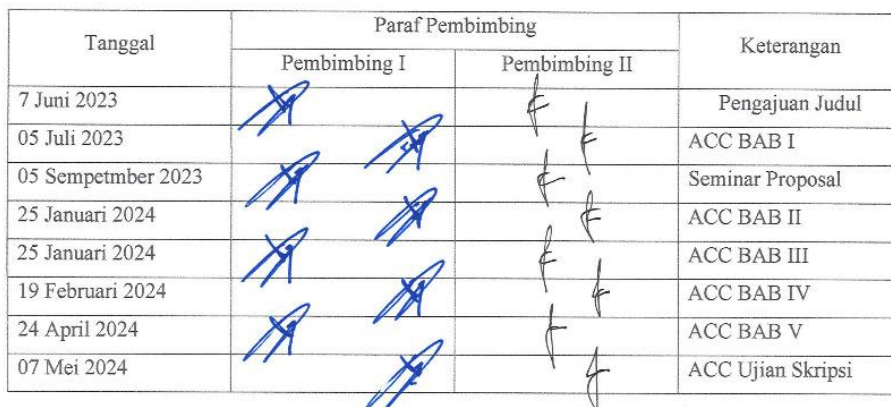 Tanggal Paraf Pembimbing Keterangan
Pembimbing I Pembimbing II
7 Juni 2023 Pengajuan Judul
05 Juli 2023 ACC BAB I
05 Sempetmber 2023 Seminar Proposal
25 Januari 2024 ACC BAB II
25 Januari 2024 ACC BAB III
19 Februari 2024 ACC BAB IV
24 April 2024 ACC BAB V
07 Mei 2024 ACC Ujian Skripsi